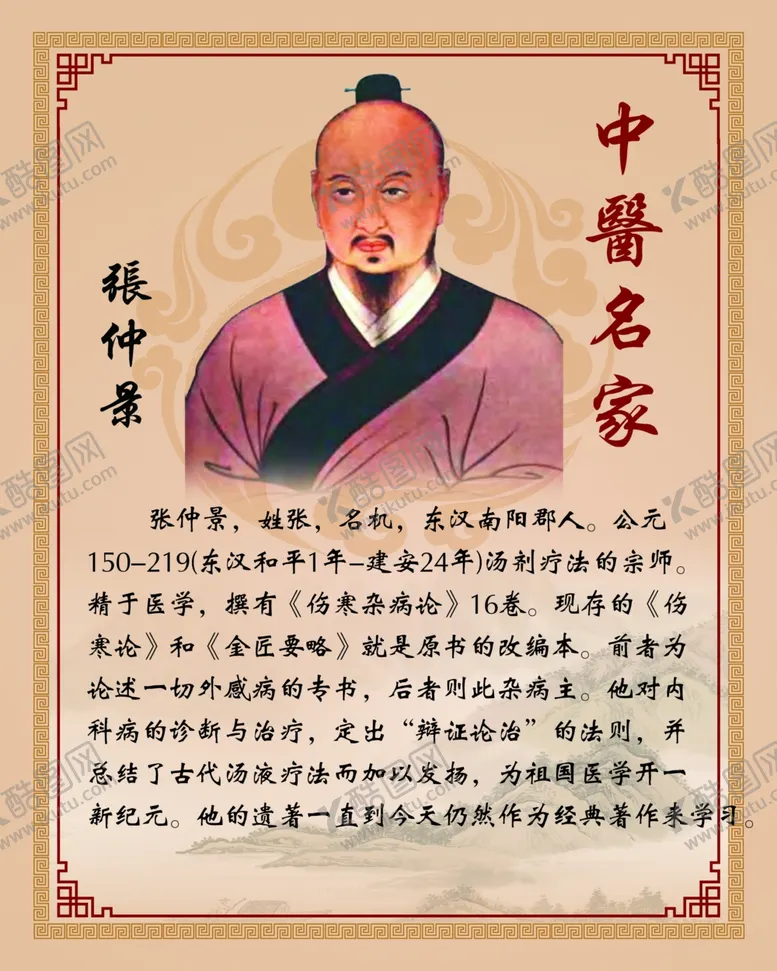 中醫名家
張仲景
张仲景，姓张，名机，东汉南阳郡人。公元
150-219(东汉和平1年-建安24年)汤剂疗法的宗师。
精于医学，撰有《伤寒杂病论》16卷。现存的《伤
寒论》和《金匠要略》就是原书的改编本。前者为
论述一切外感病的专书，后者则此杂病主。他对内
科病的诊断与治疗，定出“辩证论治”的法则，并
总结了古代汤液疗法而加以发扬，为祖国医学开一
新纪元。他的遗著一直到今天仍然作为经典著作来学习。
酷图网
www.ikutu.com